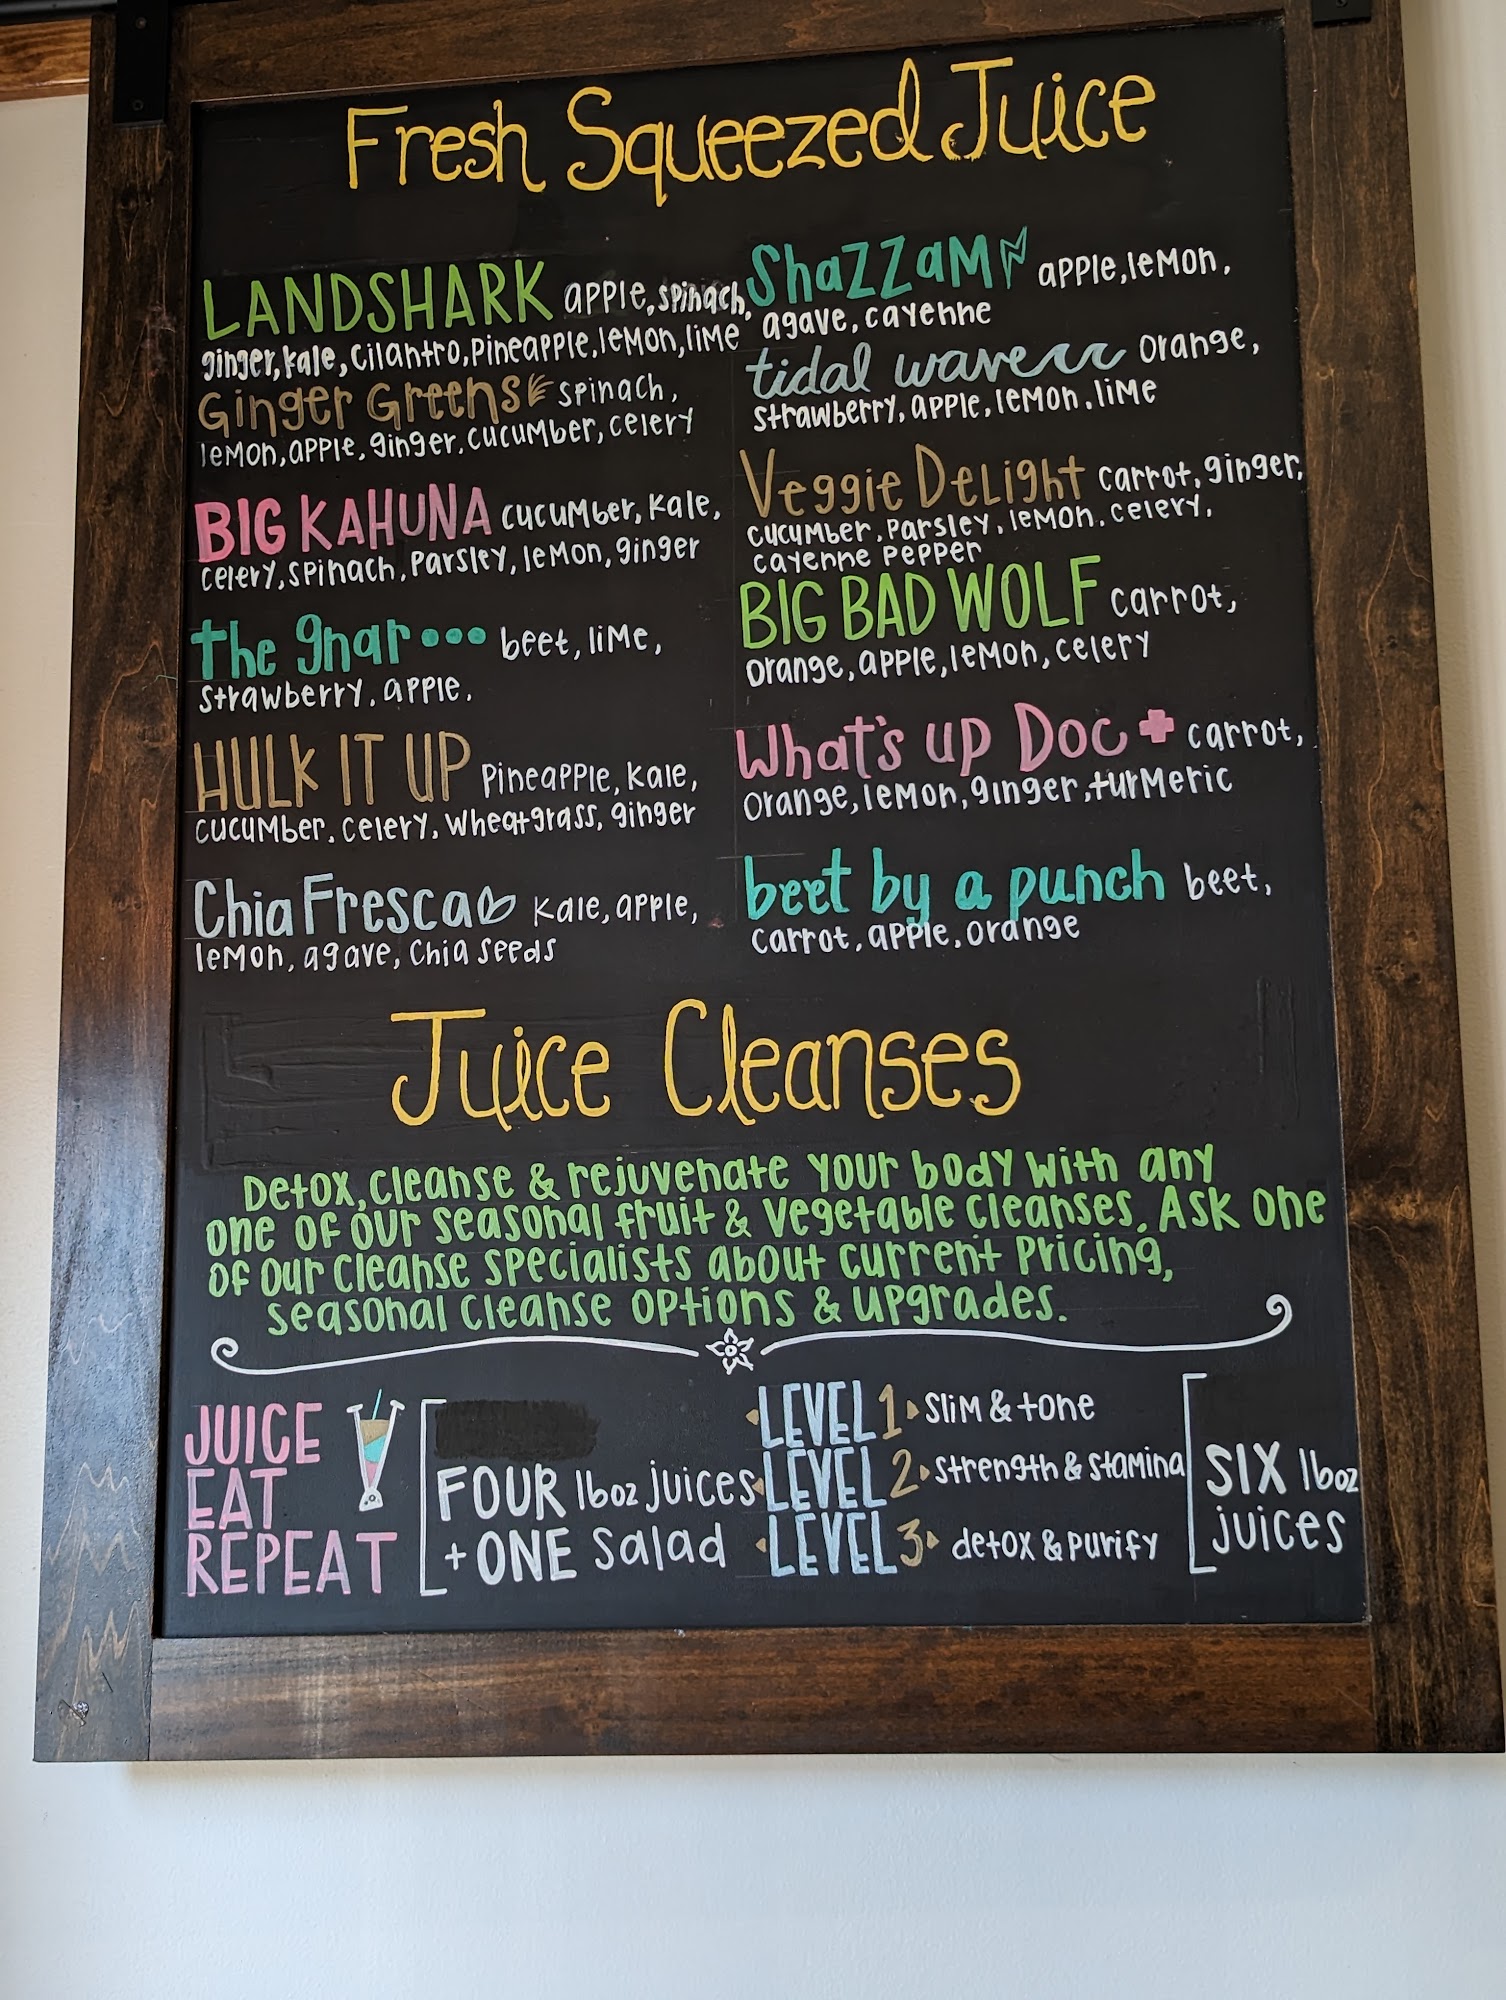 Fresh Squeezed Juice
LANDSHARK apple, spinach,
ginger, kale, cilantro, pineapple, lemon, lime
Ginger Greens spinach,
lemon, apple, ginger, cucumber, celery
BIG KAHUNA cucumber, kale,
celery, spinach, parsley, lemon, ginger
the gnar... beet, lime,
strawberry, apple.
HULK IT UP pineapple, kale,
cucumber, celery, wheatgrass, ginger
Chia Fresca kale, apple,
lemon, agave, chia seeds
ShaZZaM apple, lemon,
agave, cayenne
tidal wave orange,
strawberry, apple, lemon, lime
Veggie Delight carrot, ginger,
cucumber, parsley, lemon, celery,
cayenne pepper
BIG BAD WOLF carrot,
orange, apple, lemon, celery
What's up Doc carrot,
orange, lemon, ginger, turmeric
beet by a punch beet,
carrot, apple, orange
Juice Cleanses
Detox, cleanse & rejuvenate your body with any
one of our seasonal fruit & vegetable cleanses. Ask one
of our cleanse specialists about current pricing,
seasonal cleanse options & upgrades.
JUICE
EAT
REPEAT
FOUR 16oz juices
+ ONE salad
LEVEL 1 slim & tone
LEVEL 2 strength & stamina
LEVEL 3 detox & purify
SIX 16oz
juices